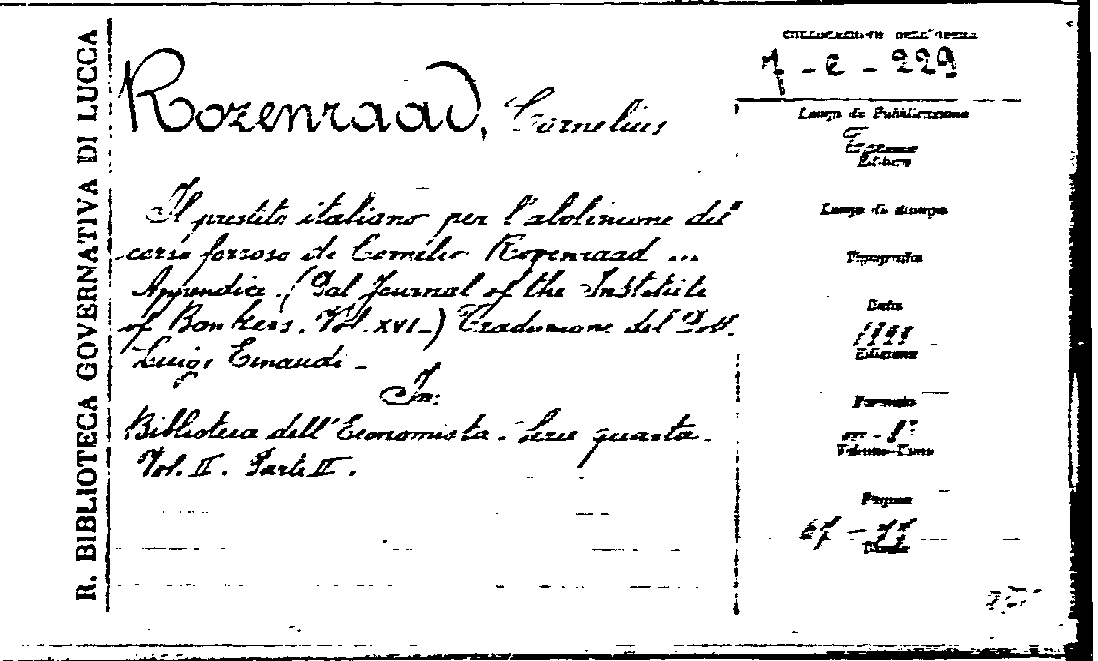 R. BIBLIOTECA GOVERNATIVA DI LUCCA
COLLOCAZIONE DELL'OPERA
7 - e - 229
Rozenraad, Cornelius
Luogo di Pubblicazione
Torino
Editore
Il prestito italiano per l'abolizione del
corso forzoso di Cornelio Rozenraad ...
Appendice. (Dal Journal of the Institute
of Bankers. Vol. XVI-) Traduzione del Dott.
Luigi Einaudi -
In:
Biblioteca dell'Economista. Serie quarta.
Vol. II. Parte II.
Luogo di stampa
Tipografia
Data
Edizione
Formato
in - 8°
Volume-Tomo
Pagine